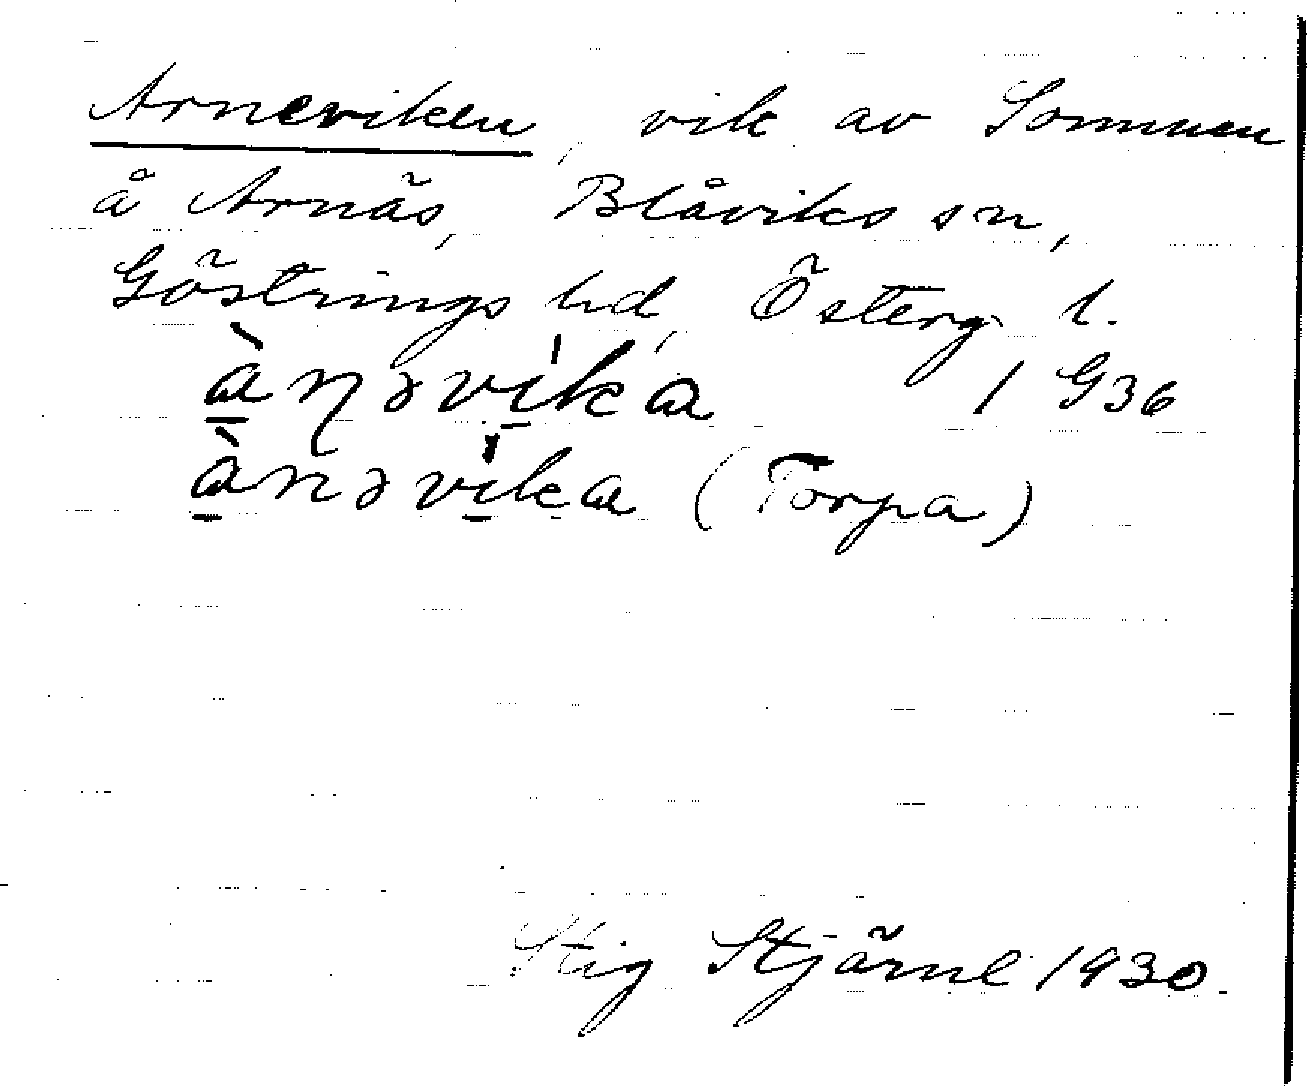 Arneviken, vik av Sommen
å Arnäs, Blåviks sn,
Göstrings hd, Österg. l.
à̲ɳəvi̲̍ka 1 G36
à̲nəvi̲̍ka (Torpa)
Stig Stjärne 1930.